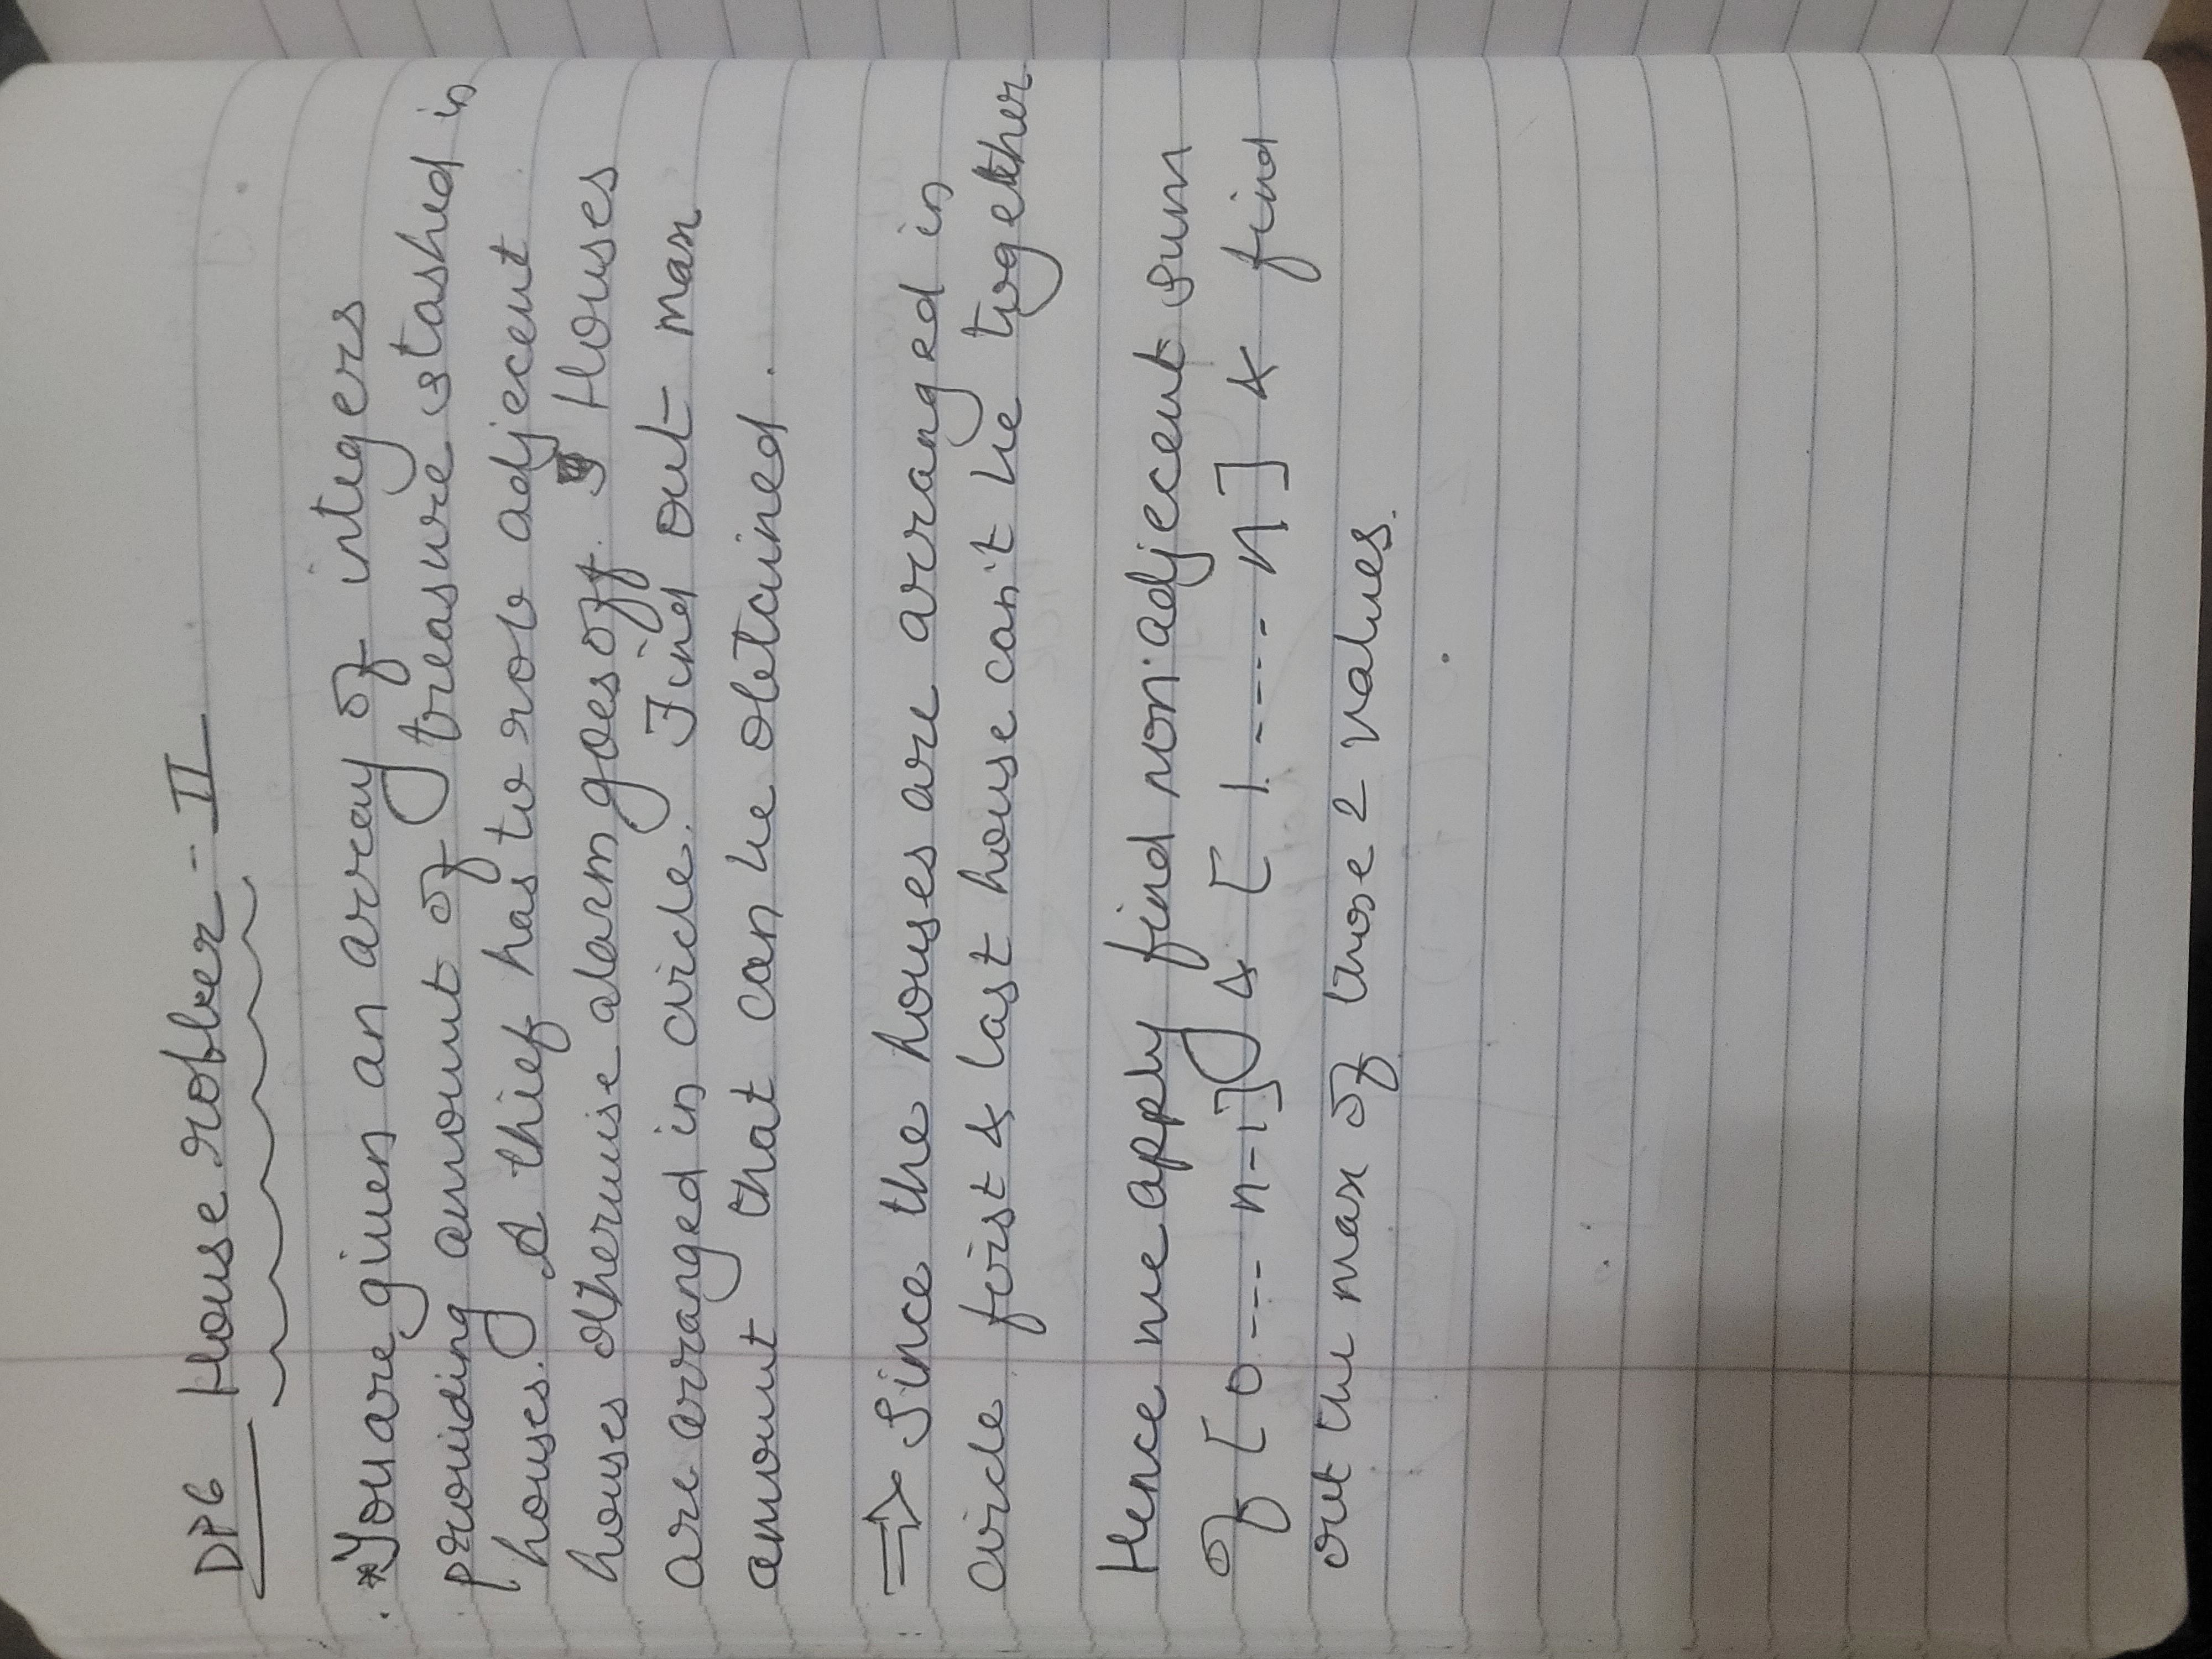 DP6 House robber - II
*You are given an array of integers
providing amount of treasure stashed in
houses. A thief has to rob adjecent
houses otherwise alarm goes off. Houses
are arranged in circle. Find out max
amount that can be obtained.
⇒ Since the houses are arranged in
circle first & last house can't be together
Hence we apply find non-adjecent sum
of [0 --- n-1] & [1 ---- n] & find
out the max of those 2 values.